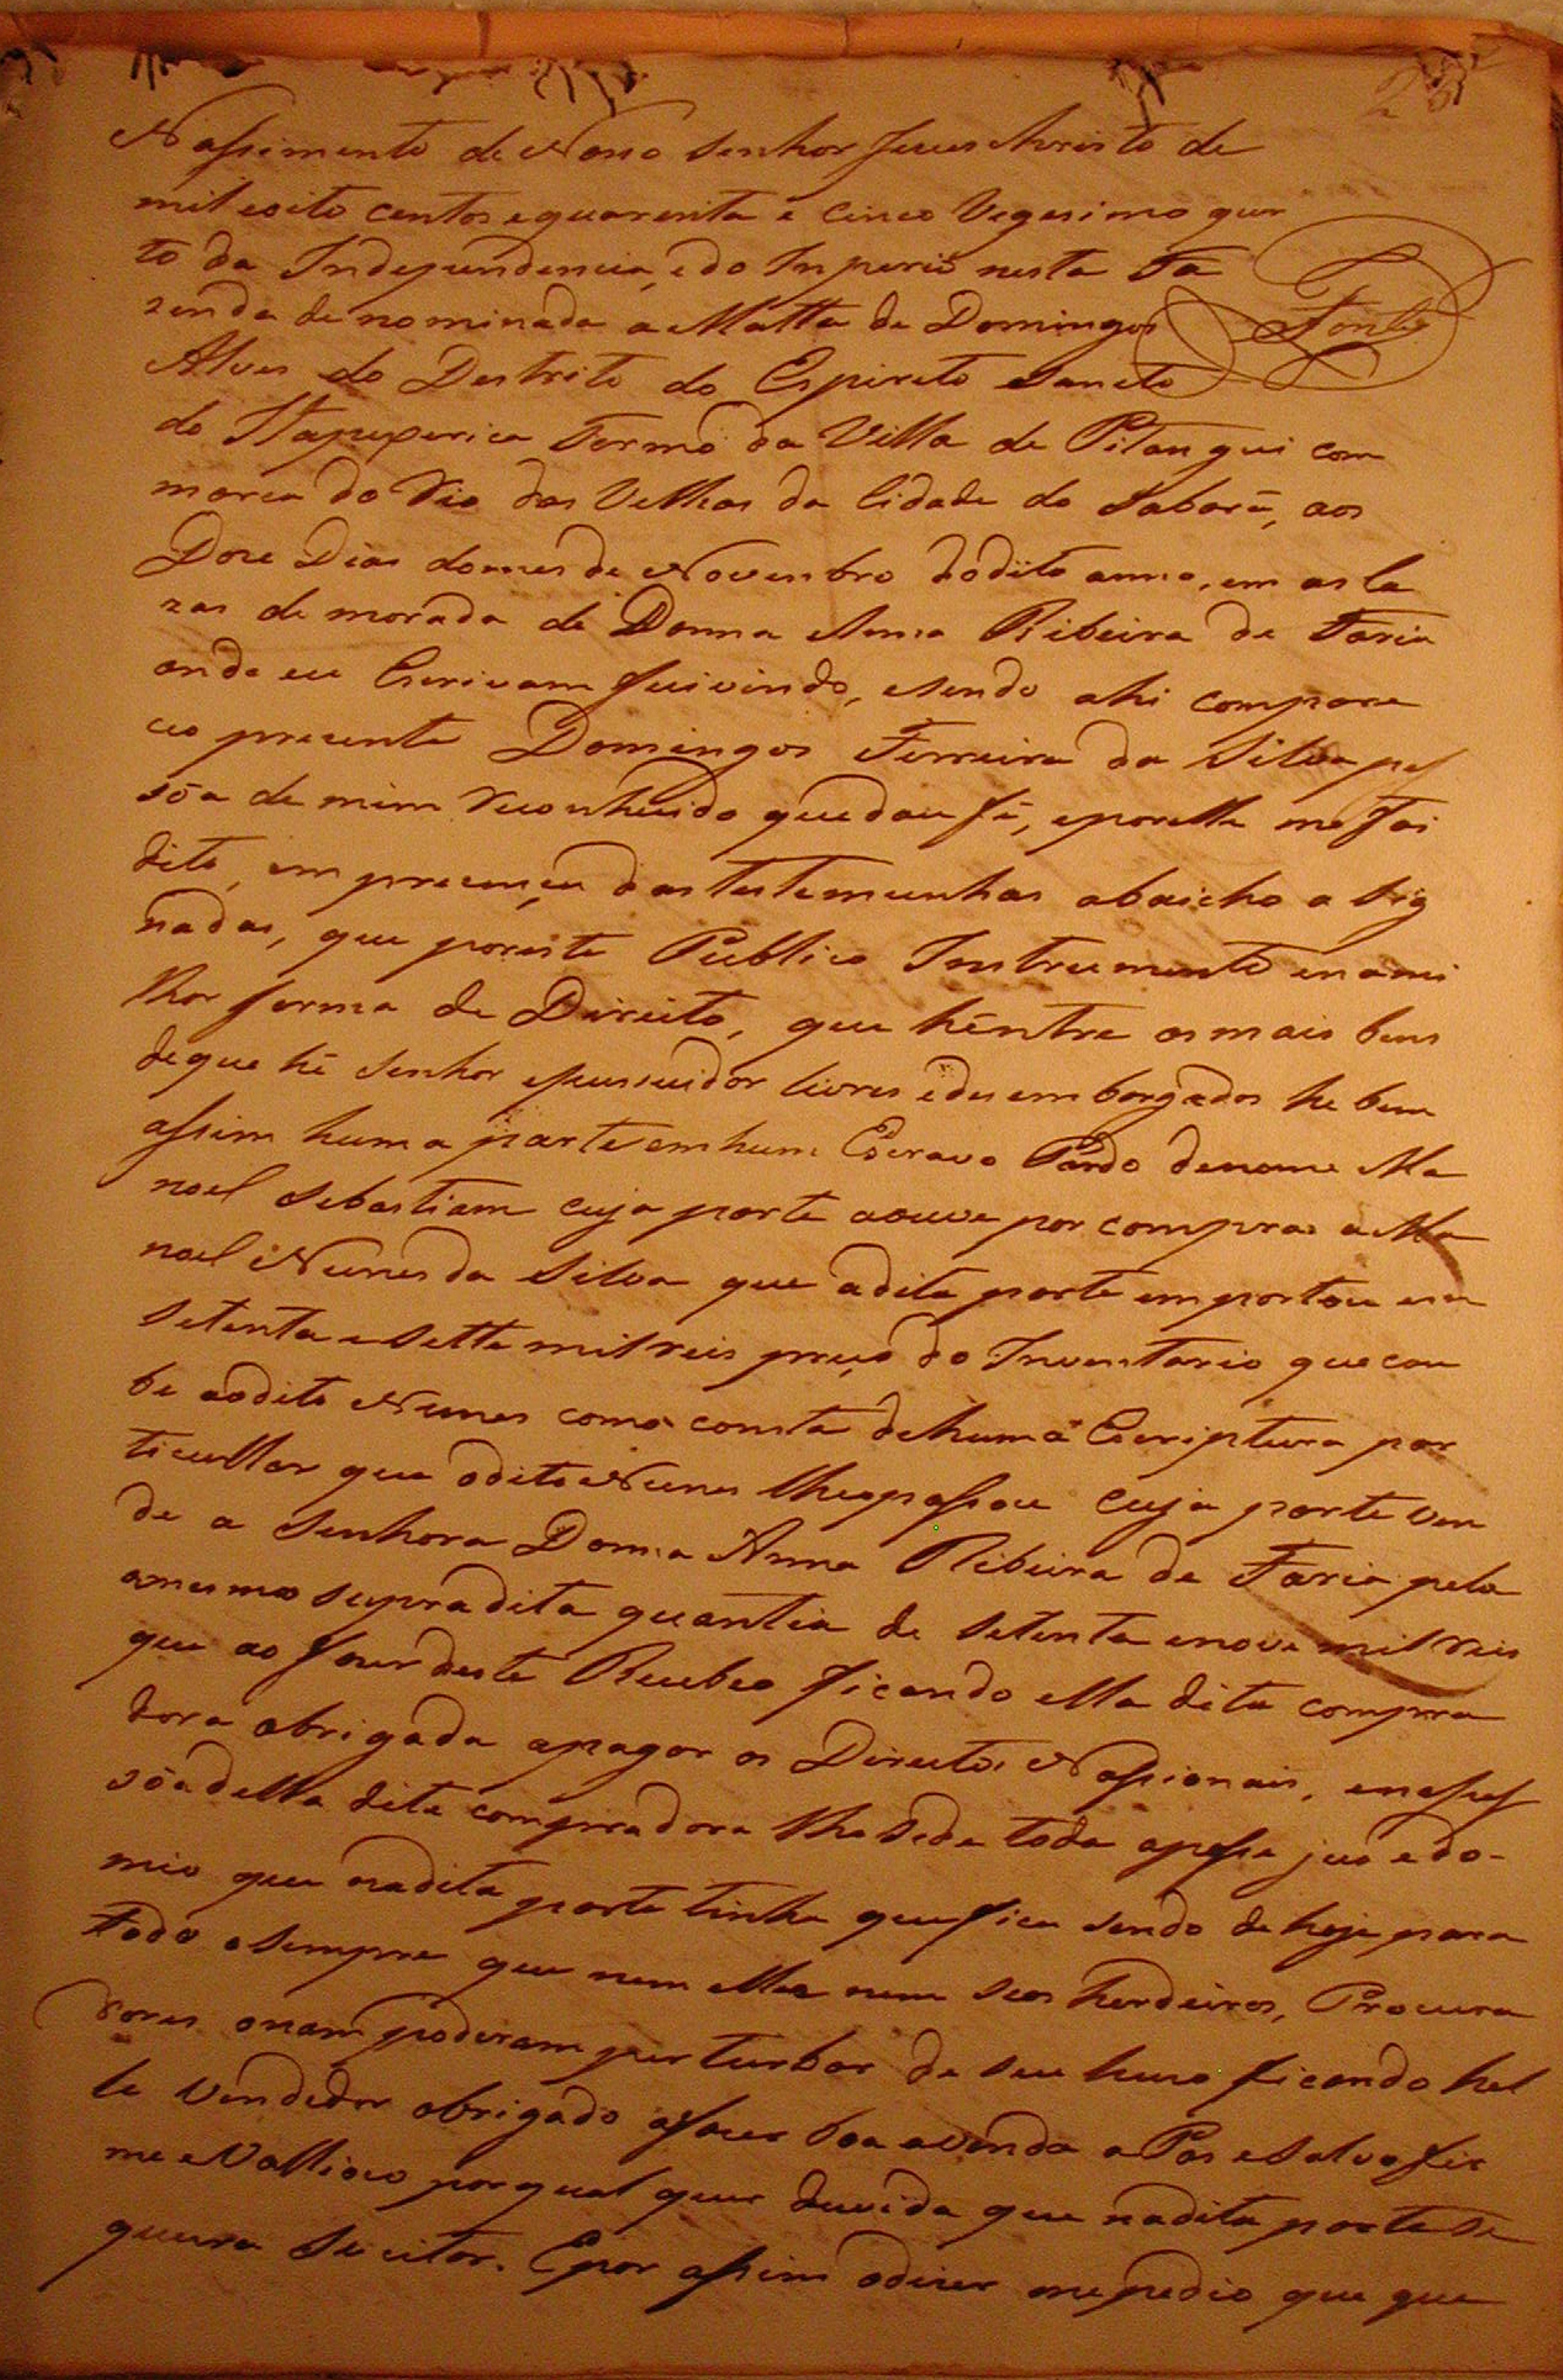 28
Nassimento de Nosso Senhor Jesus Christo de
mil e oito centos e quarenta e cinco Vegesimo quar
to da Independencia, e do Inperio nesta Fa
zenda denominada a Matta de Domingos
Fontes
Alves do Destrito do Espirito Sancto
do Itapeserica Termo da Villa de Pitangui com
marca do Rio das Velhas da Cidade do Sabará, aos
Doze Dias do mes de Novenbro do dito anno, em as Ca
zas de morada de Donna Anna Ribeira de Faria
onde eu Escrivam fui vindo, e sendo ahi compare
ceo presente Domingos Ferreira da Silva pes
sôa de mim reconhecido que dou fé, e por elle me foi
dito, em presença das testemunhas abaicho a sig
nadas, que por este Publico Instrumento e na mi
lhor forma de Direito, que hé entre os mais bens
de que hé Senhor e pussuidor livres e desembargados he bem
assim huma parte em hum Escravo Pardo de nome Ma
noel Sebastiam cuja parte a ouve por compra a Ma
noel Nunes da Silva que a dita parte emportou em
Setenta e Sette mil reis preço do Inventario que cou
be ao dito Nunes como consta de huma Escriptura par
ticullar que o dito Nunes lhe passou cuja parte ven
de a Senhora Donna Anna Ribeira de Faria pela
a mesma supra dita quantia de Setenta e nove mil reis
que ao fazer deste Recebeo ficando ella dita compra
dora obrigada a pagar os Direitos Nassionais, e na pes
sôa della dita compradora lhe seda toda a posse jus e do-
mio que na dita parte tinha que fica sendo de hoje para
todo o sempre que nem elle nem seos herdeiros, Procura
dores o nam poderam perturbar de seu huso ficando hel
le Vendedor obrigado a fazer boa a venda a Pas e Salvo fir
me e Vallioso por qual quer duvida que na dita parte se
queira Sucitar. E por assim o dizer me pedio que que